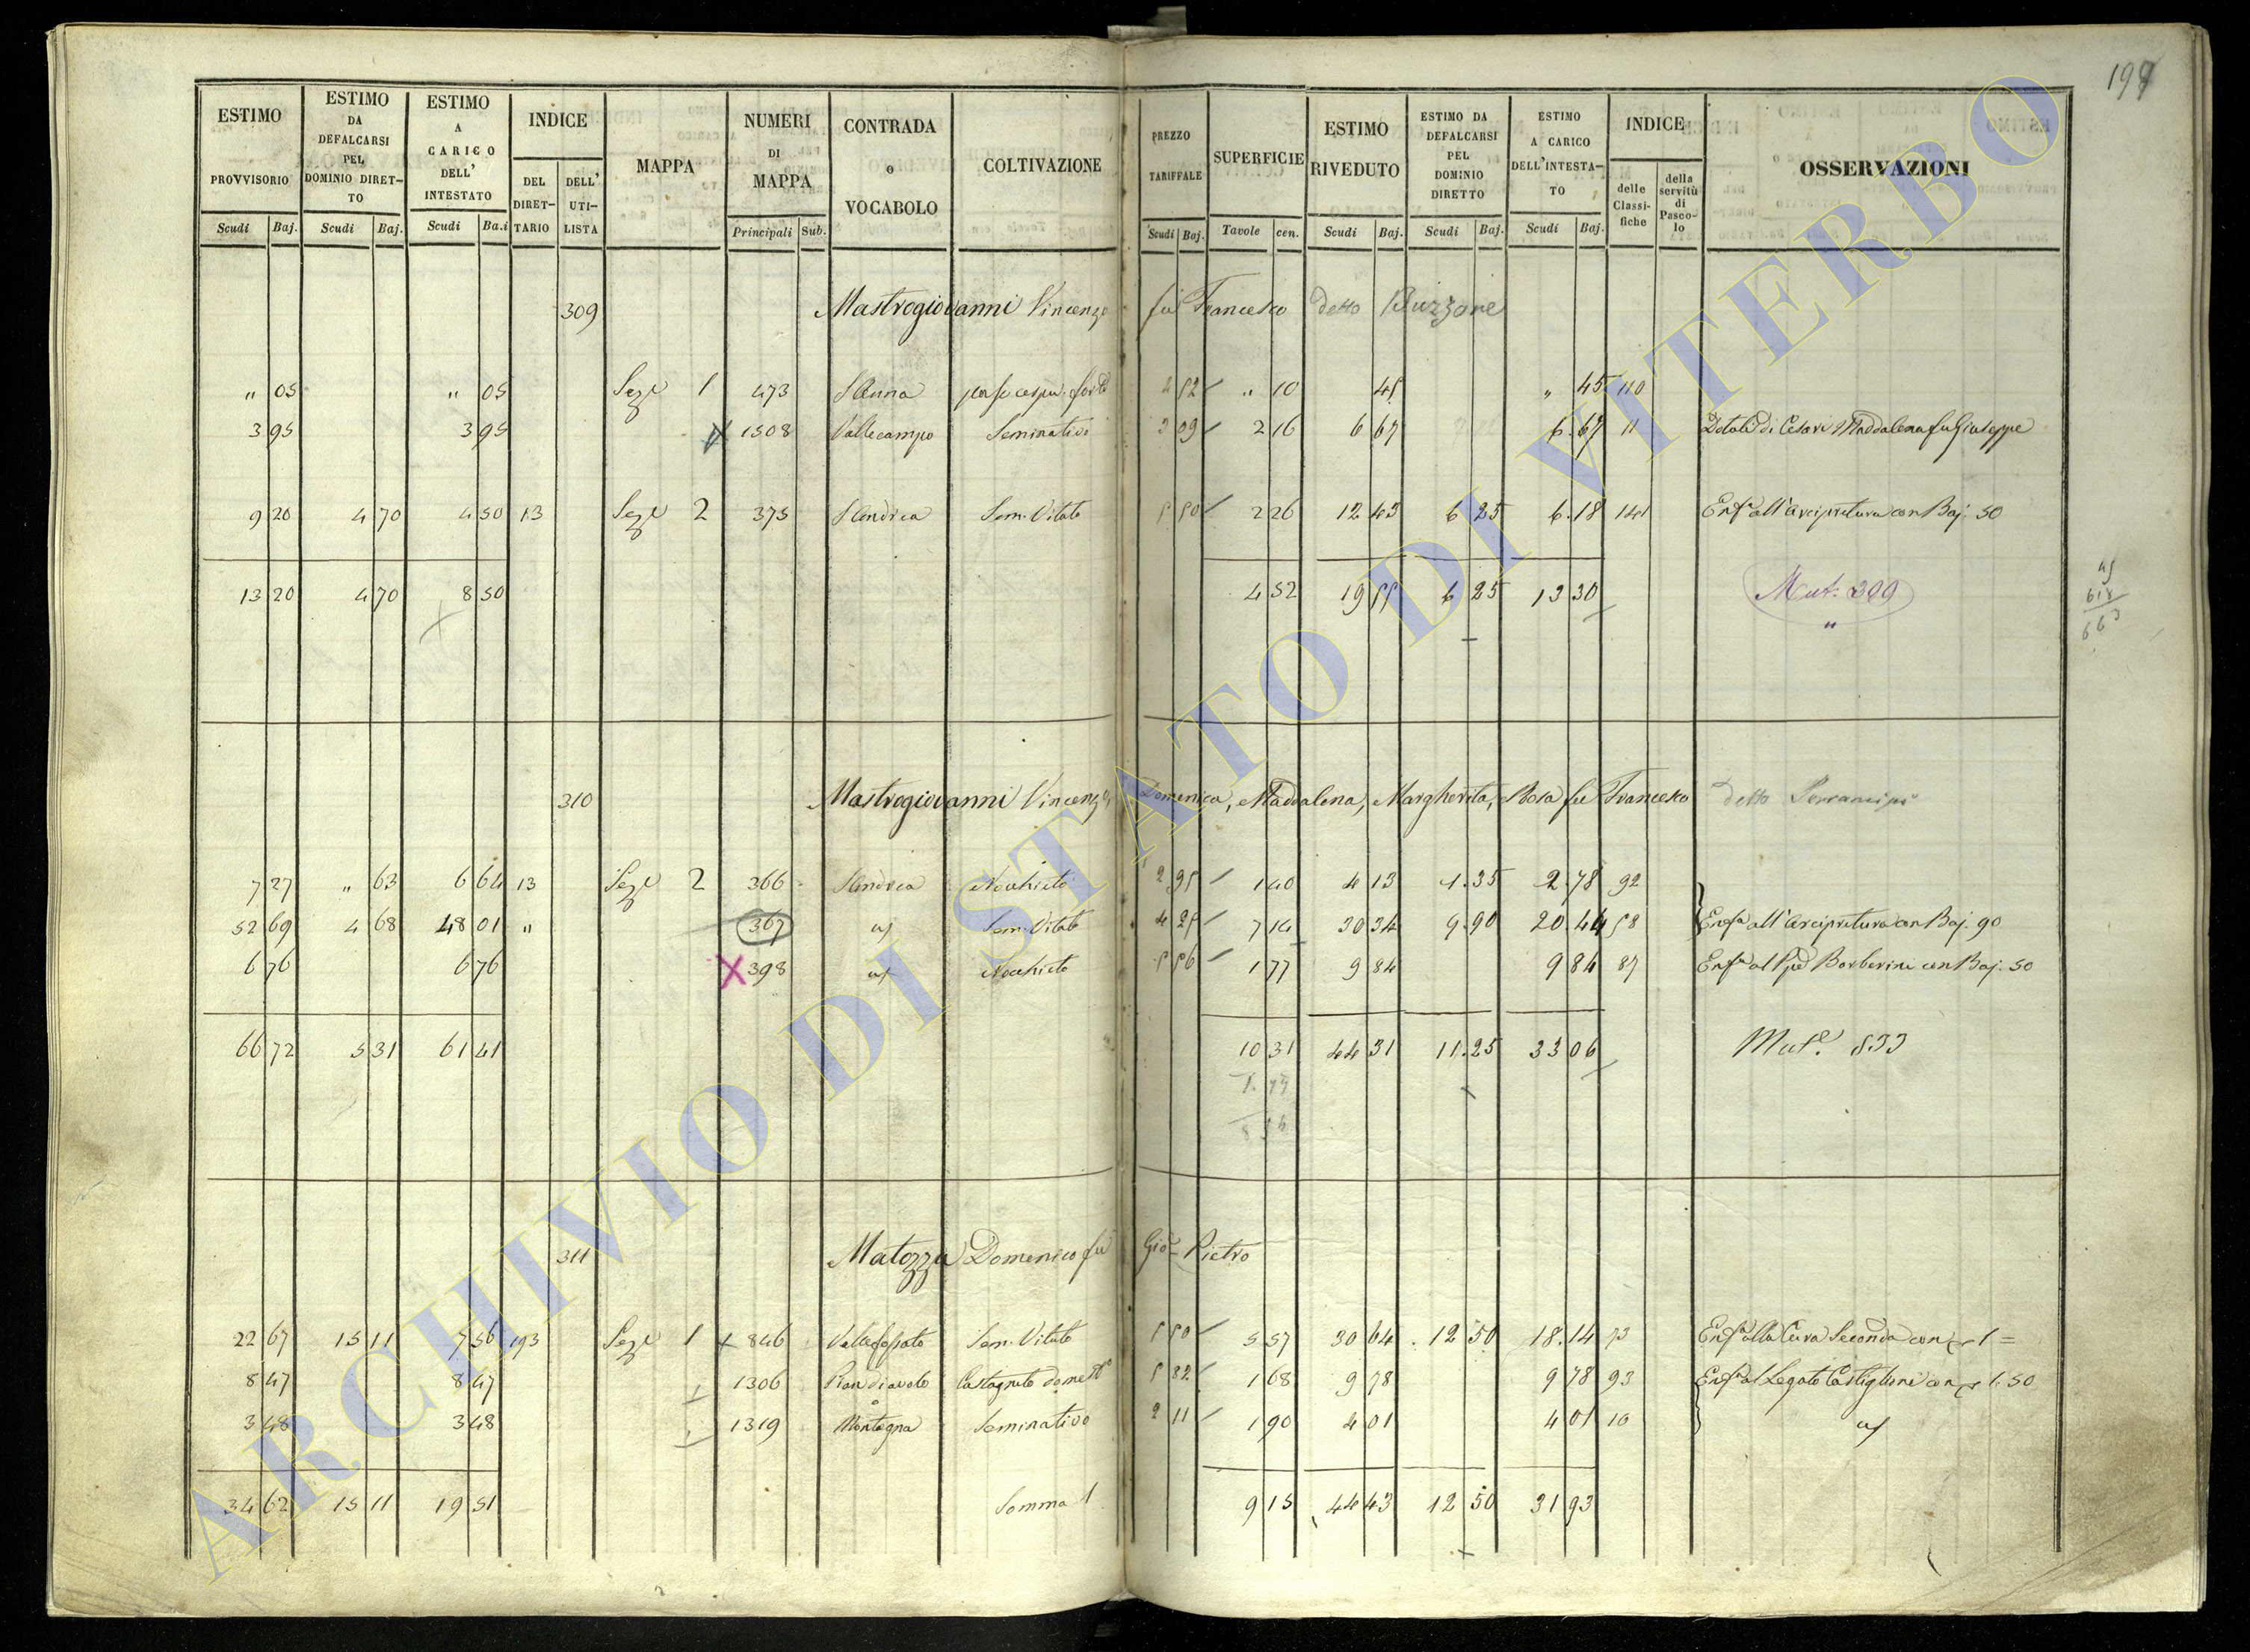 199
ESTIMO PROVVISORIO Scudi Baj.
ESTIMO DA DEFALCARSI PEL DOMINIO DIRET-TO Scudi Baj.
ESTIMO A CARICO DELL' INTESTATO Scudi Ba.i
INDICE DEL DIRET-TARIO DELL' UTI-LISTA
MAPPA
NUMERI DI MAPPA Principali Sub.
CONTRADA o VOCABOLO
COLTIVAZIONE
PREZZO TARIFFALE Scudi Baj.
SUPERFICIE Tavole cen.
ESTIMO RIVEDUTO Scudi Baj.
ESTIMO DA DEFALCARSI PEL DOMINIO DIRETTO Scudi Baj.
ESTIMO A CARICO DELL'INTESTA-TO Scudi Baj.
INDICE delle Classi-fiche della servitù di Pasco-lo
OSSERVAZIONI
309 Mastrogiovanni Vincenzo fu Francesco detto Buzzone
" 05 " 05 Seze 1 473 S Anna 4 52 " 10 45 " 45 110
3 95 3 95 1508 Vallecampo Seminativo 3 09 2 16 6 67 6.67 11 Dotali di Cesari Maddalena fu Giuseppe
9 20 4 70 4 50 13 Seze 2 375 S Andrea Sem. Vitato 5 50 2 26 12 43 6 25 6.18 141 Enfa all'Arcipretura con Baj. 50
13 20 4 70 8 50 4 52 19 55 6 25 13 30 Mut. 309
"
45
618
663
310 Mastrogiovanni Vincenzo, Domenica, Maddalena, Margherita, Rosa fu Francesco detto
7 27 " 63 6 64 13 Seze 2 366 S Andrea Nocchieto 2 95 1 40 4 13 1.35 2.78 92
52 69 4 68 48 01 " 367 aj Sem. Vitato 4 25 7 14 30 34 9.90 20.44 58 Enfa all'Arcipretura con Baj. 90
6 76 6 76 398 aj Nocchieto 5 56 1 77 9 84 9 84 87 Enfa al Ppe Barberini con Baj. 50
66 72 5 31 61 41 10 31 44 31 11.25 33 06 Mute. 833
1.77
8 54
311 Matozza Domenico fu Gio Pietro
22 67 15 11 7 56 193 Seze 1 846 Vallefossato Sem. Vitato 5 50 5 57 30 64 12 50 18.14 73 Enfa alla Cura Seconda con 1 =
8 47 8 47 1306 Pian diavolo Castagneto domestº 5 82 1 68 9 78 9 78 93 Enfa al Legato Castiglioni con 1:50
3 48 3 48 1319 Montagna Seminativo 2 11 1 90 4 01 4 01 10 aj
34 62 15 11 19 51 Somma 1 9 15 44 43 12 50 31 93
ARCHIVIO DI STATO DI VITERBO